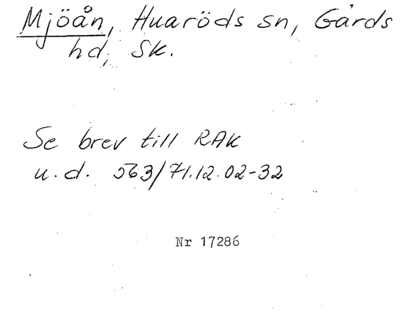 Mjöån, Huaröds sn, Gärds
hd, Sk.
Se brev till RAK
u.d. 563/71.12.02-32
Nr 17286